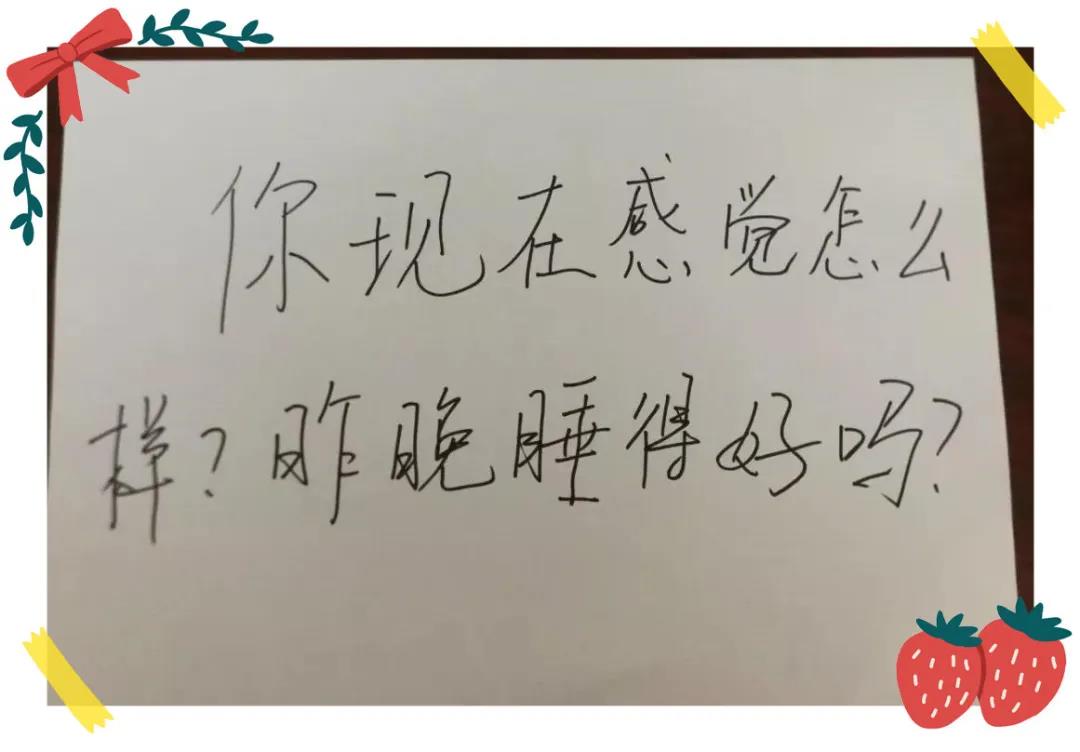 你现在感觉怎么
样？昨晚睡得好吗？